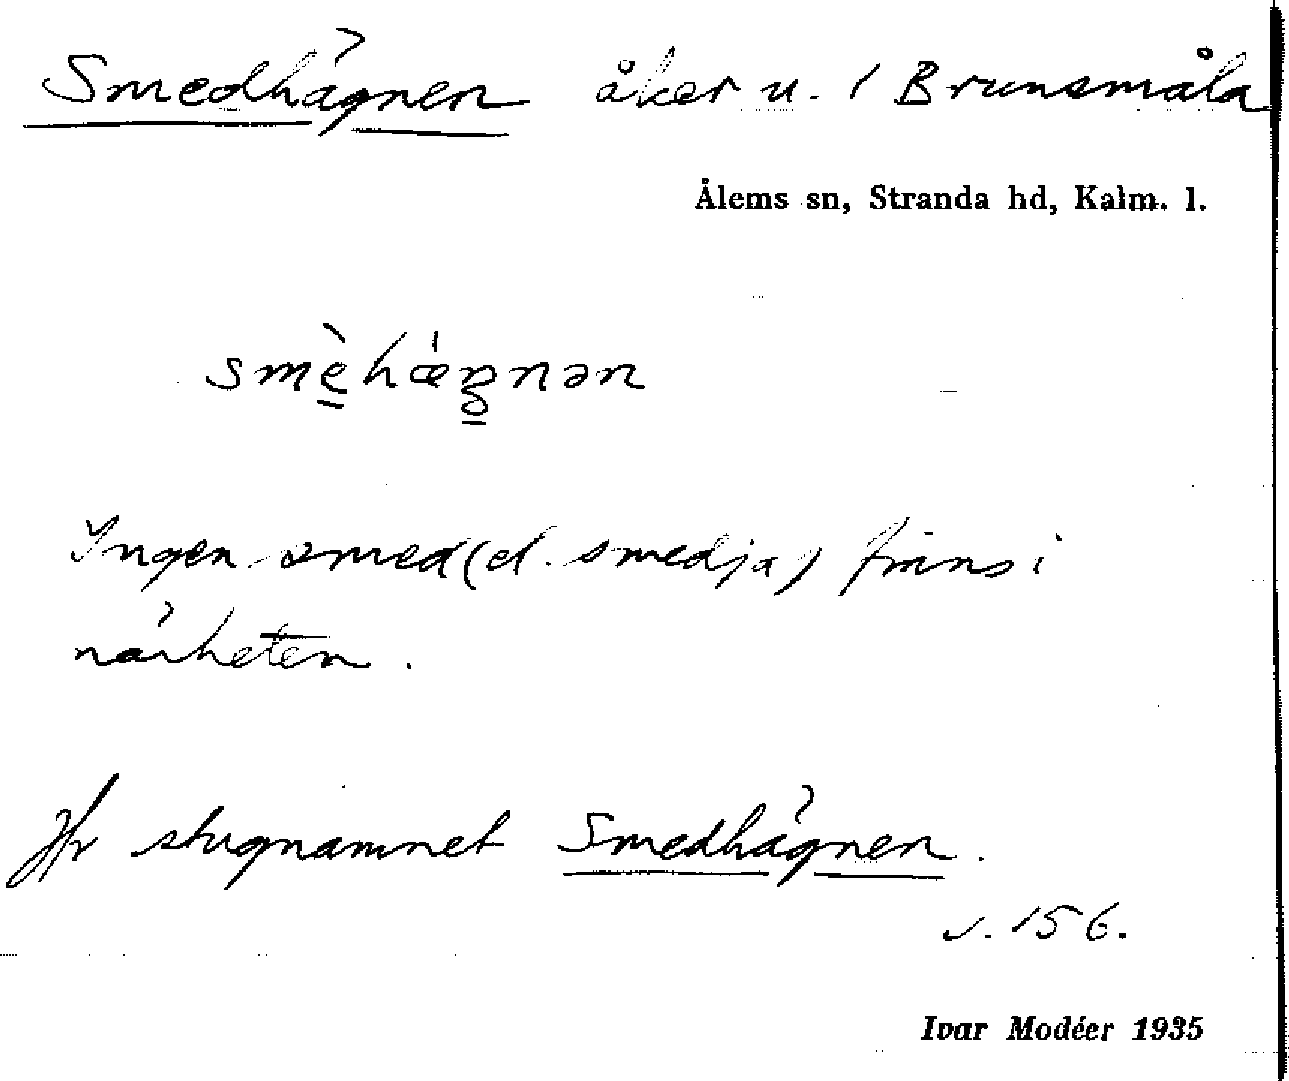 Smedhägnen åker u. 1 Brunsmåla
Ålems sn, Stranda hd, Kalm. l.
smèhǽgnən
Ingen smed (el. smedja) finns i
närheten.
Jfr stugnamnet Smedhägnen.
s. 156.
Ivar Modéer 1935